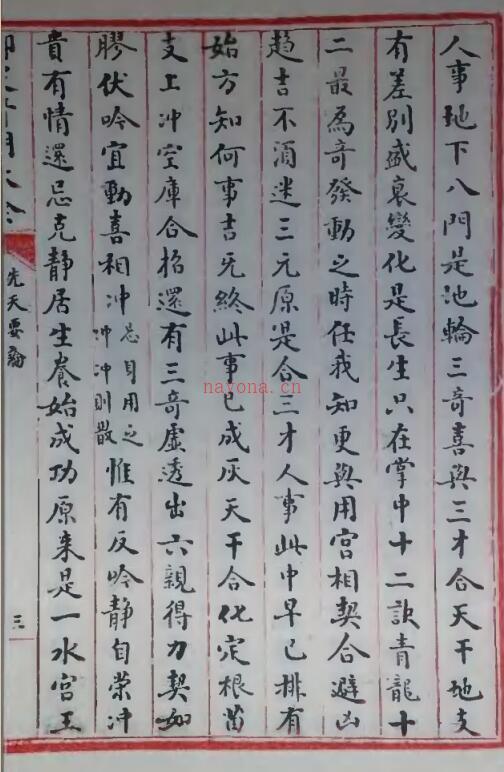 人事地下八門是池輪三奇喜與三才合天干地支
有差別盛衰變化是長生只在掌中十二訣青龍十
二最為奇發動之時任我知更與用宮相契合避凶
趨吉不須迷三元原是合三才人事此中早已排有
始方知何事吉无終此事已成灰天干合化定根苗
支上冲空庫合招還有三奇虛透出六親得力契如
膠伏吟宜動喜相冲忌自用之冲冲則散惟有反吟靜自榮冲
貴有情還忌克靜居生養始成功原來是一水宮王
先天要論
三
nayona.cn